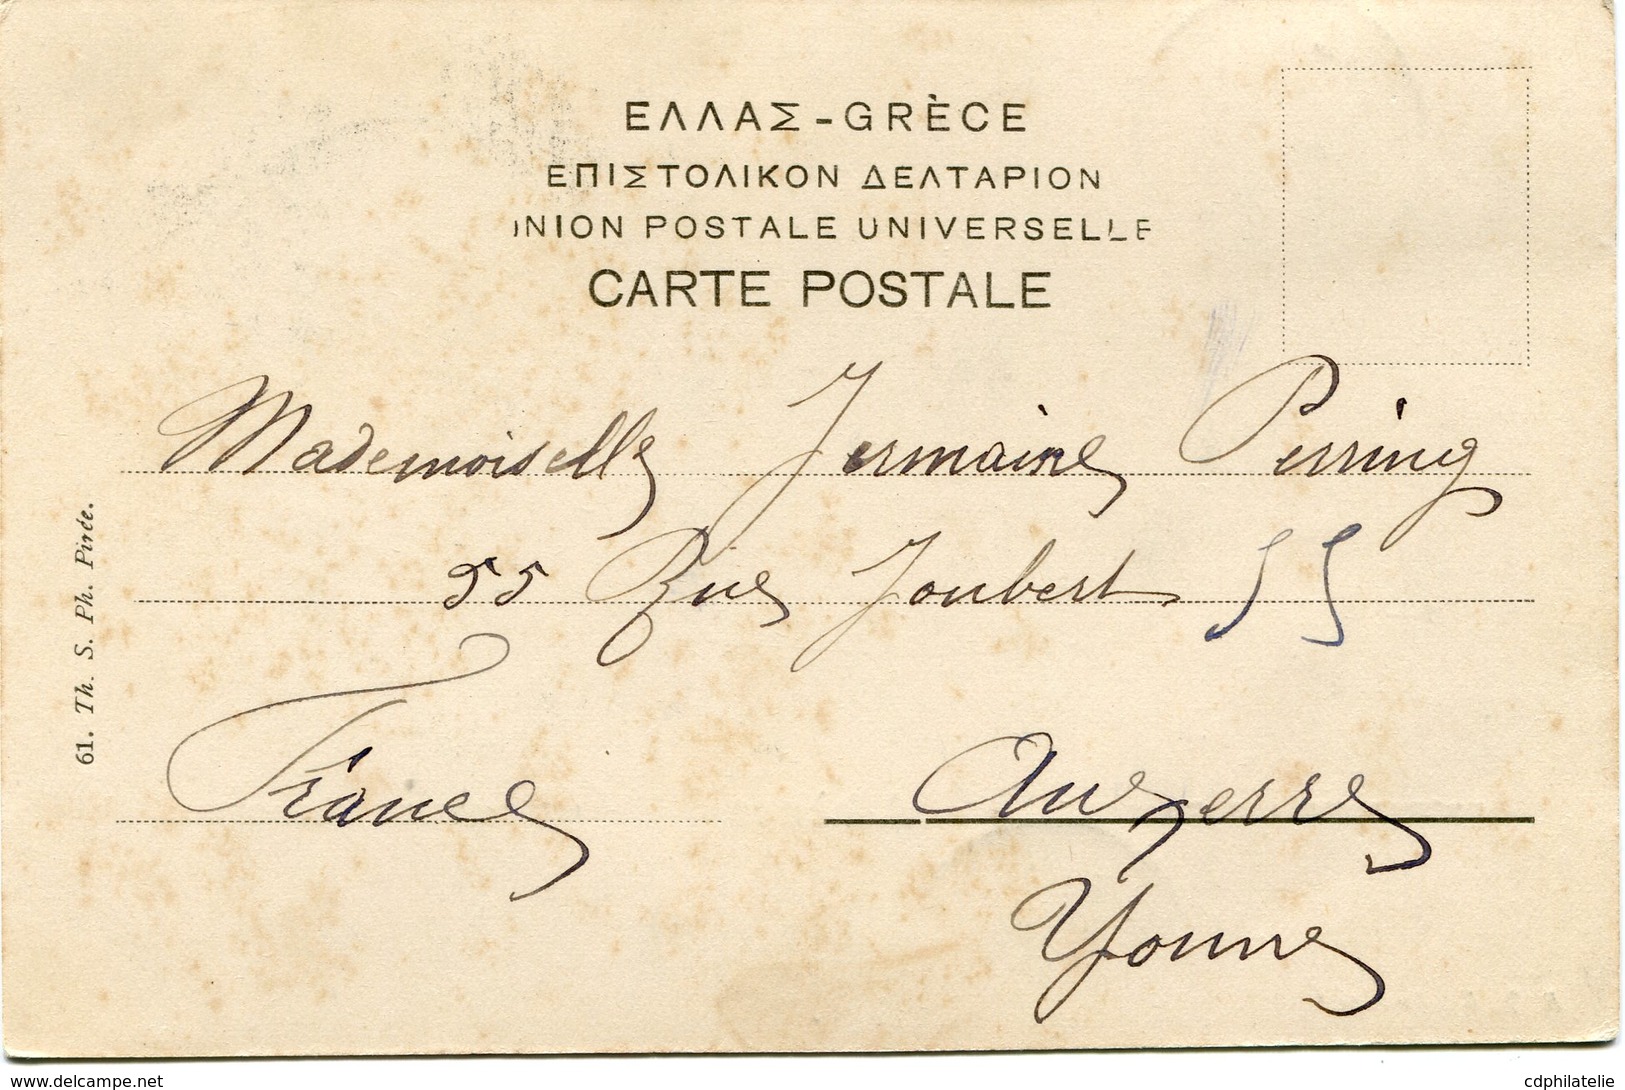 ΕΛΛΑΣ - GRÈCE
ΕΠΙΣΤΟΛΙΚΟΝ ΔΕΛΤΑΡΙΟΝ
UNION POSTALE UNIVERSELLE
CARTE POSTALE
Mademoiselle Germaine Perring
55 Rue Joubert 55
France Auxerre
Yonne
61. Th. S. Ph. Pirée.
www.delcampe.net
cdphilatelie